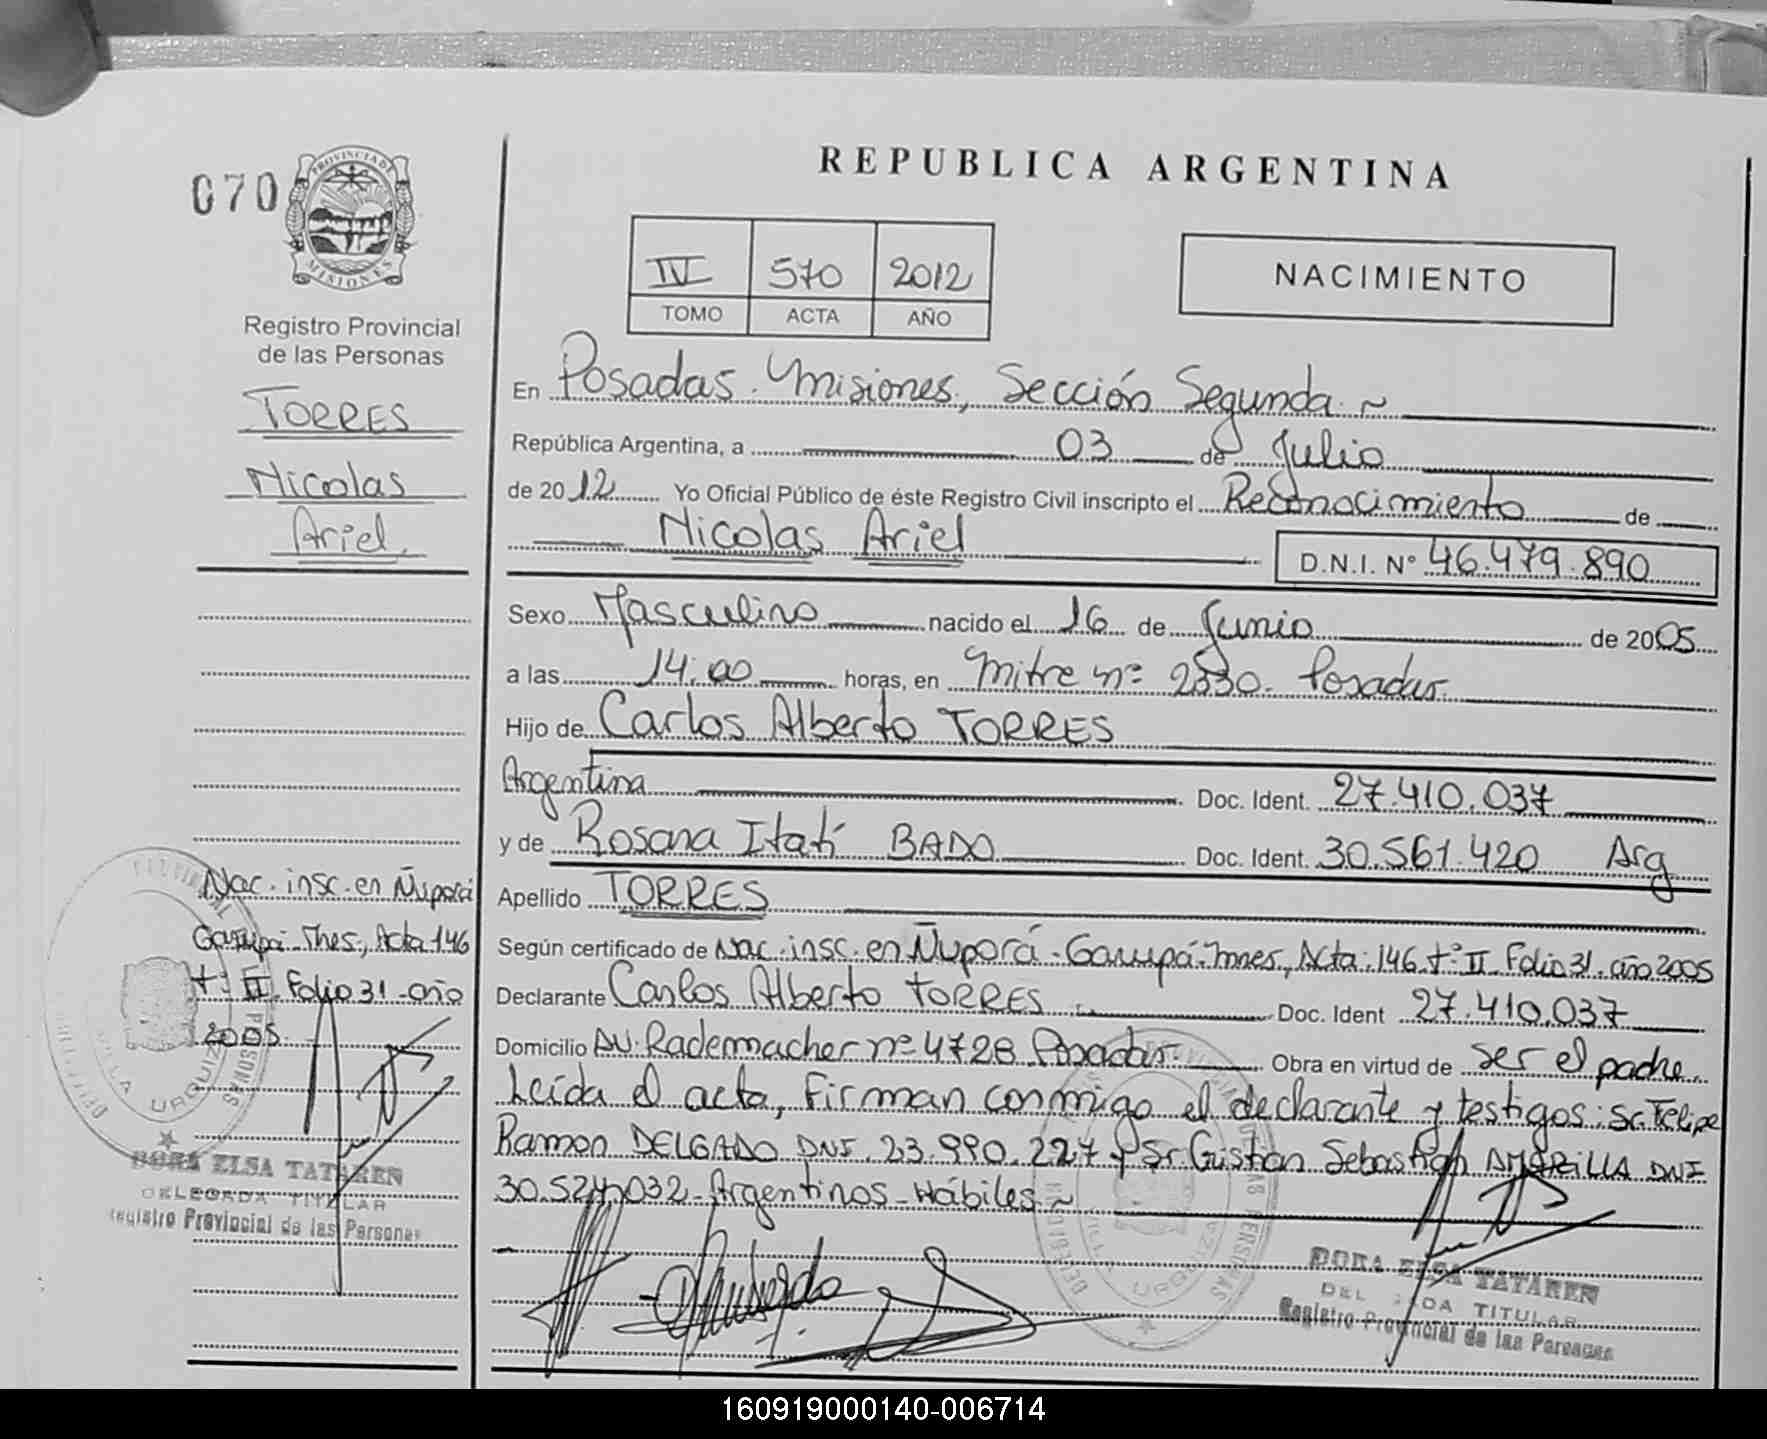 REPUBLICA ARGENTINA
070
PROVINCIA DE
MISIONES
Registro Provincial
de las Personas
TORRES
Nicolas
Ariel
Nac. insc. en Ñuporá
Garupá - Mnes, Acta 146
tº II Folio 31 - año
2005
DORA ELSA TATAREN
DELEGADA TITULAR
Registro Provincial de las Personas
IV 570 2012
TOMO ACTA AÑO
NACIMIENTO
En Posadas - Misiones, Sección Segunda ~
República Argentina, a 03 de Julio
de 2012 Yo Oficial Público de éste Registro Civil inscripto el Reconocimiento de
Nicolas Ariel D.N.I. Nº 46.479.890
Sexo Masculino nacido el 16 de Junio de 2005
a las 14:00 horas, en Mitre nº 2330 - Posadas.
Hijo de Carlos Alberto TORRES
Argentina Doc. Ident. 27.410.037
y de Rosana Itatí BADO Doc. Ident. 30.561.420 Arg
Apellido TORRES
Según certificado de Nac. insc. en Ñuporá - Garupá - Mnes, Acta: 146 tº II Folio 31 - año 2005
Declarante Carlos Alberto TORRES Doc. Ident 27.410.037
Domicilio Av. Rademacher nº 4728 Posadas Obra en virtud de ser el padre.
Leída el acta, firman conmigo el declarante y testigos: Sr. Felipe
Ramon DELGADO DNI. 23.990.227 y Sr. Cristian Sebastian AMARILLA DNI
032 - Argentinos - Hábiles ~
VILLA URQUIZA
DORA ELSA TATAREN
DELEGADA TITULAR
Registro Provincial de las Personas
160919000140-006714